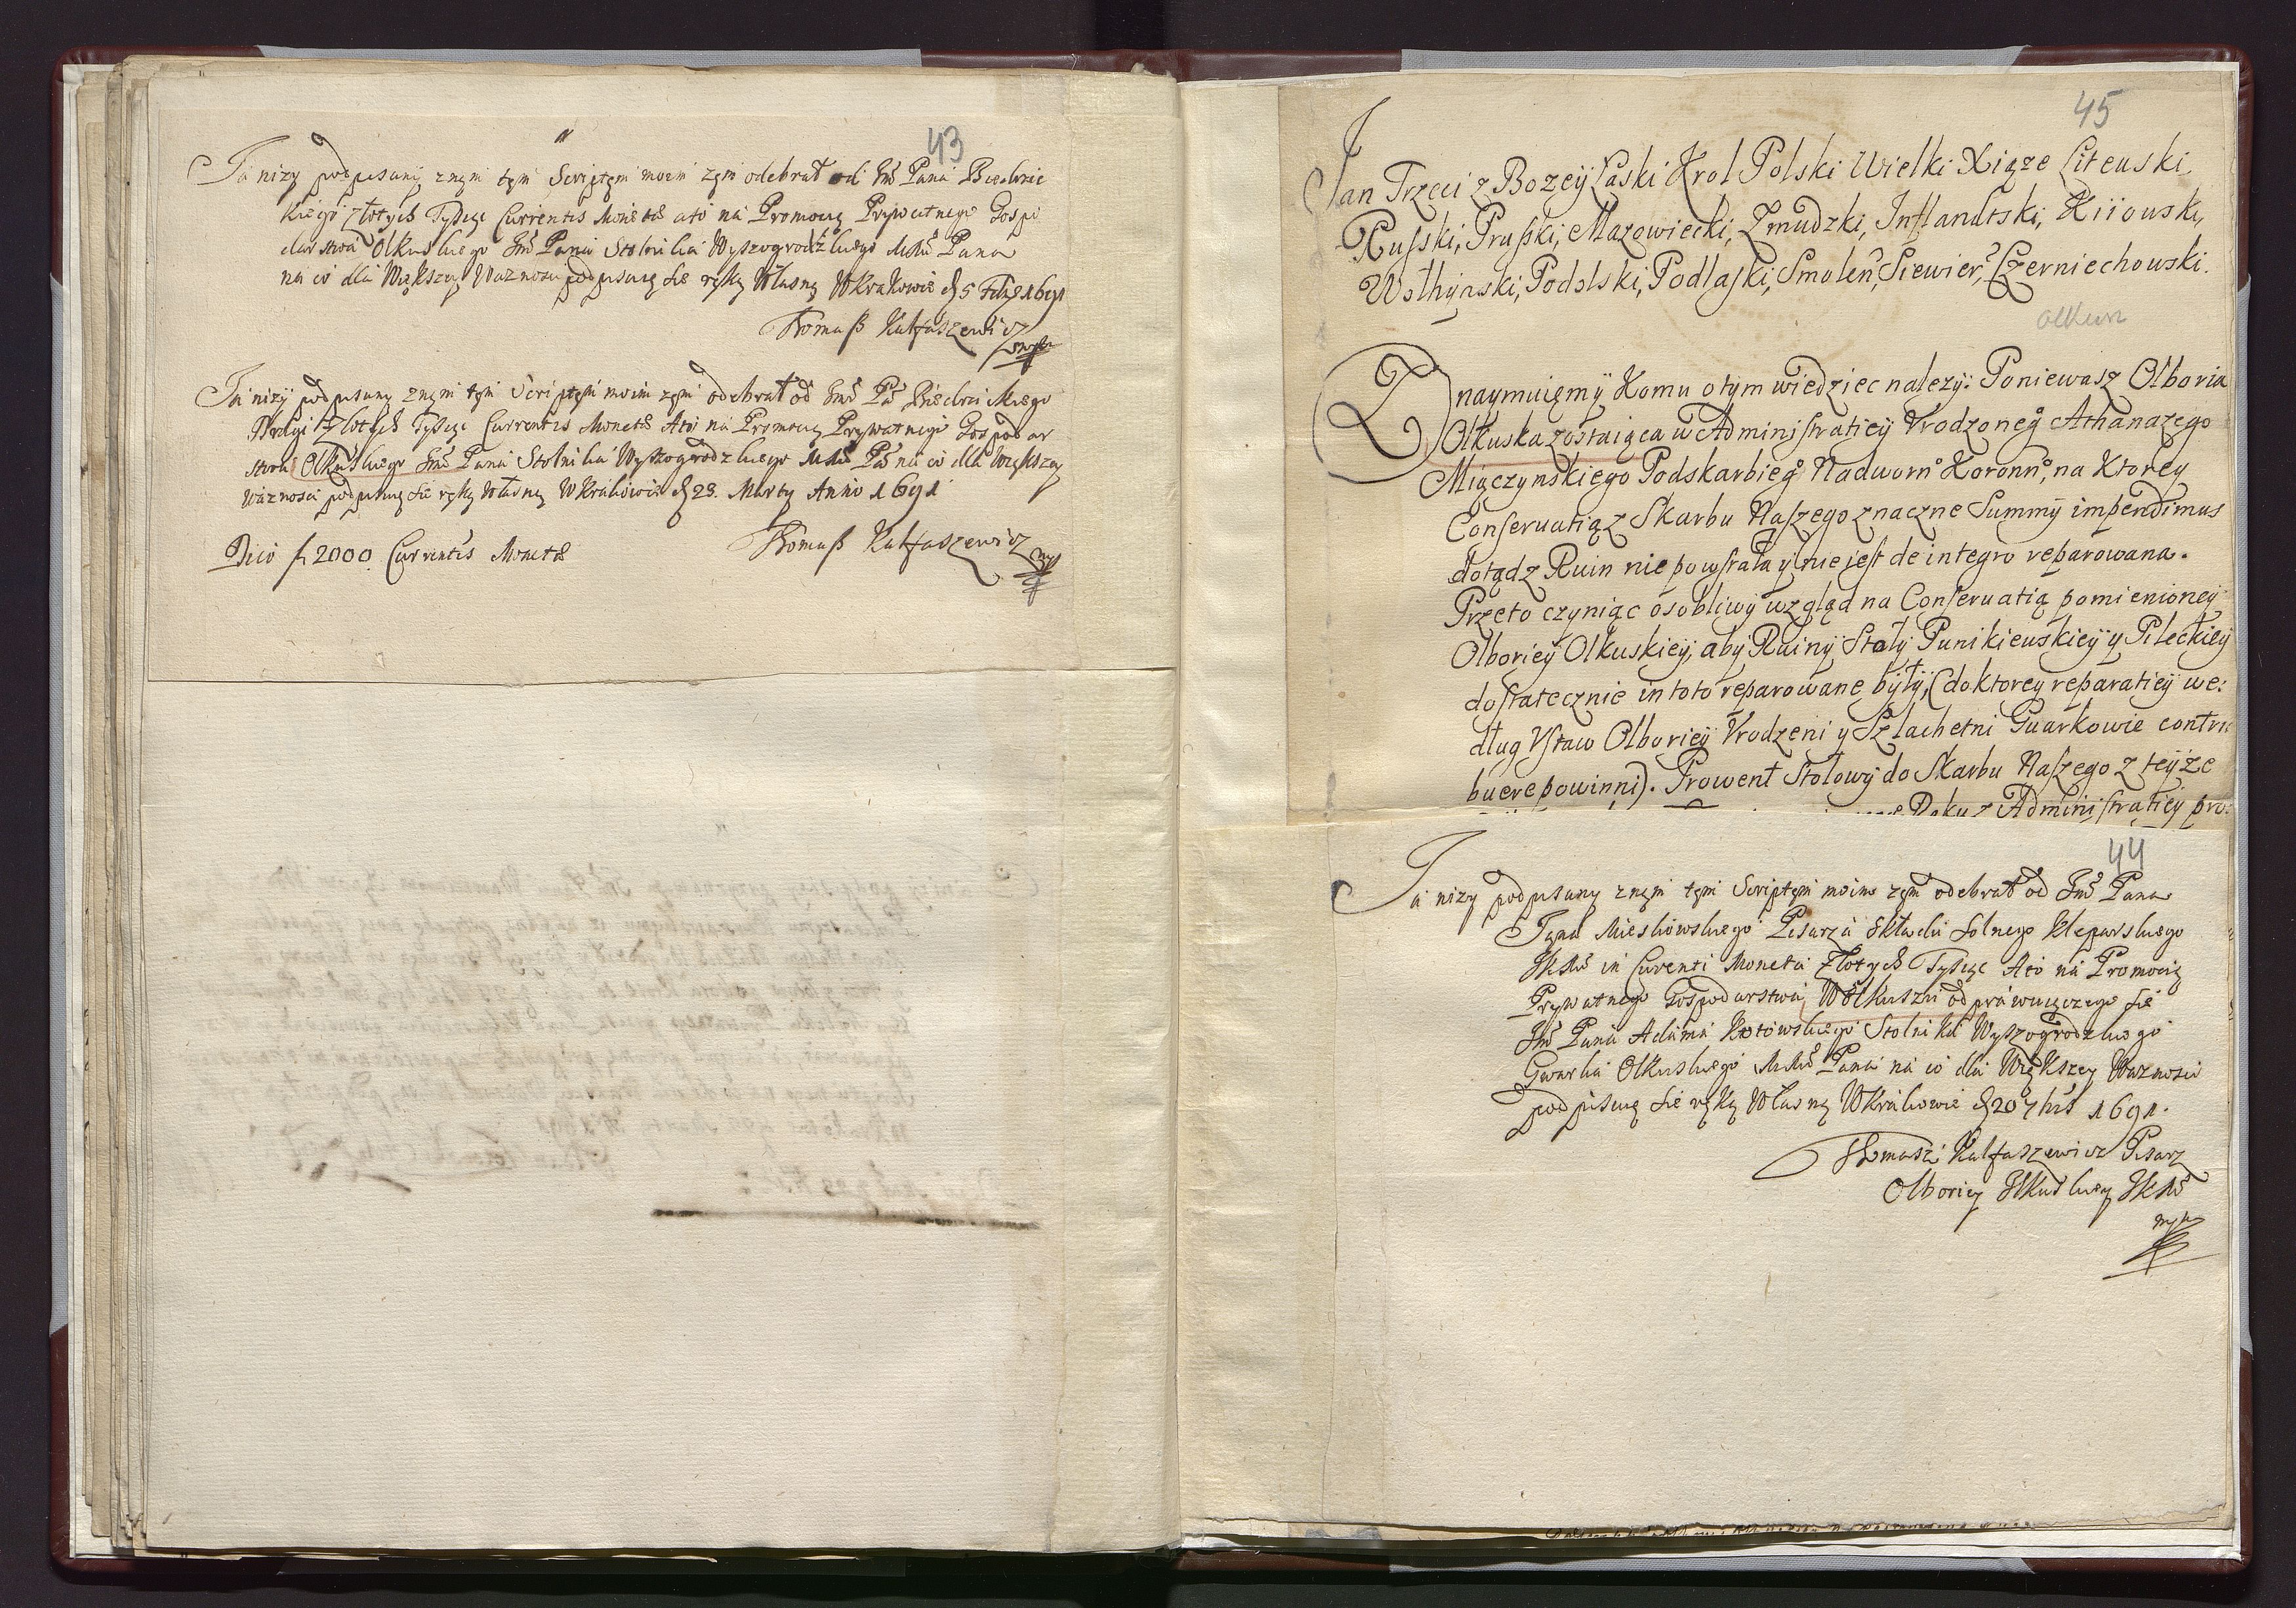 43
Ja nizy podpisany znąm tęm Scriptęm moim zęm odebrał od Jmś Pana Biedrzic
kiego złotych Tysięc Currentis Monetæ ato na Promocyą Prywatnego Gospo
darstwa Olkuskiego Jmś Pana Stolnika Wyszogrodzkiego Mśś Pana
na co dla Większey Waznosci podpisuię się ręką Własną WKrakowie d 5 Febr 1691
Thomasz Kalfaszewicz
mpr
Ja nizy podpisany znęm tęm Scriptęm moim zęm odebrał od Jmś Pa Biedrzickiego
Drugi Złotych Tysięc Currentis Monetæ Ato na Promocyą Prywatnego Gospodar
stwa Olkuskiego Jmś Pana Stolnika Wyszogrodzkiego Mśś Pa na co dla Większey
Waznosci podpisuię się ręką Własną WKrakowie d 23. Marty Anno 1691
Dico f. 2000 Currentis Monetæ
Thomasz Kalfaszewicz
mp
45
Jan Trzeci z Bozeÿ Łaski Krol Polski Wielki Xiąze Liteuski,
Russki, Pruski, Mazowiecki, Zmudzki, Inflandtski, Kiiouski,
Wołhynski, Podolski, Podlaski, Smolen, Siewier, Czerniechouski.
olkusz
Znaymuięmÿ Komu otym wiedziec nalezy: Poniewasz Olboria
Olkuska zostaiąca w Administratieÿ Vrodzoneg Athanazego
Miączynskiego Podskarbieg Nadworn Koronn, na Ktorey
Conseruatią z Skarbu Naszego znaczne Summÿ impendimus
dotądz Ruin nie powstała y nie jest de integro reparowana.
Przeto czyniąc osobliwÿ wzgląd na Conseruatią pomienioneÿ
Olborieÿ Olkuskieÿ, aby Ruinÿ Stoly Punikieuskieÿ y Pileckieÿ
dostatecznie in toto reparowane byłÿ, (do ktorey reparatieÿ we:
dług Vstaw Olborieÿ Vrodzeni y Szlachetni Guarkowie contri
buere powinni). Prowent Stołowÿ do Skarbu Naszego z teÿze
Roku z Administratieÿ pro:
44
Ja nizy podpisany znęm tęm Scriptęm moim zęm odebrał od Jmś Pana
Jana Mieskowskiego Pisarza Składu Solnego Kleparskiego
JKMś in Curenti Moneta Złotych Tysięc Ato na Promocią
Prywatnego Gospodarstwa WOlkuszu odprawuięczego się
Jmś Pana Adama Kotowskiego Stolnika Wyszogrodzkiego
Gwarka Olkuskiego MMś Pana na co dla Większey Waznosci
podpisuię się ręką Własną WKrakowie d 20 7bris 1691.
Thomasz Kalfaszewicz Pisarz
Olboriey Jlkuskiey JKMś
mpr